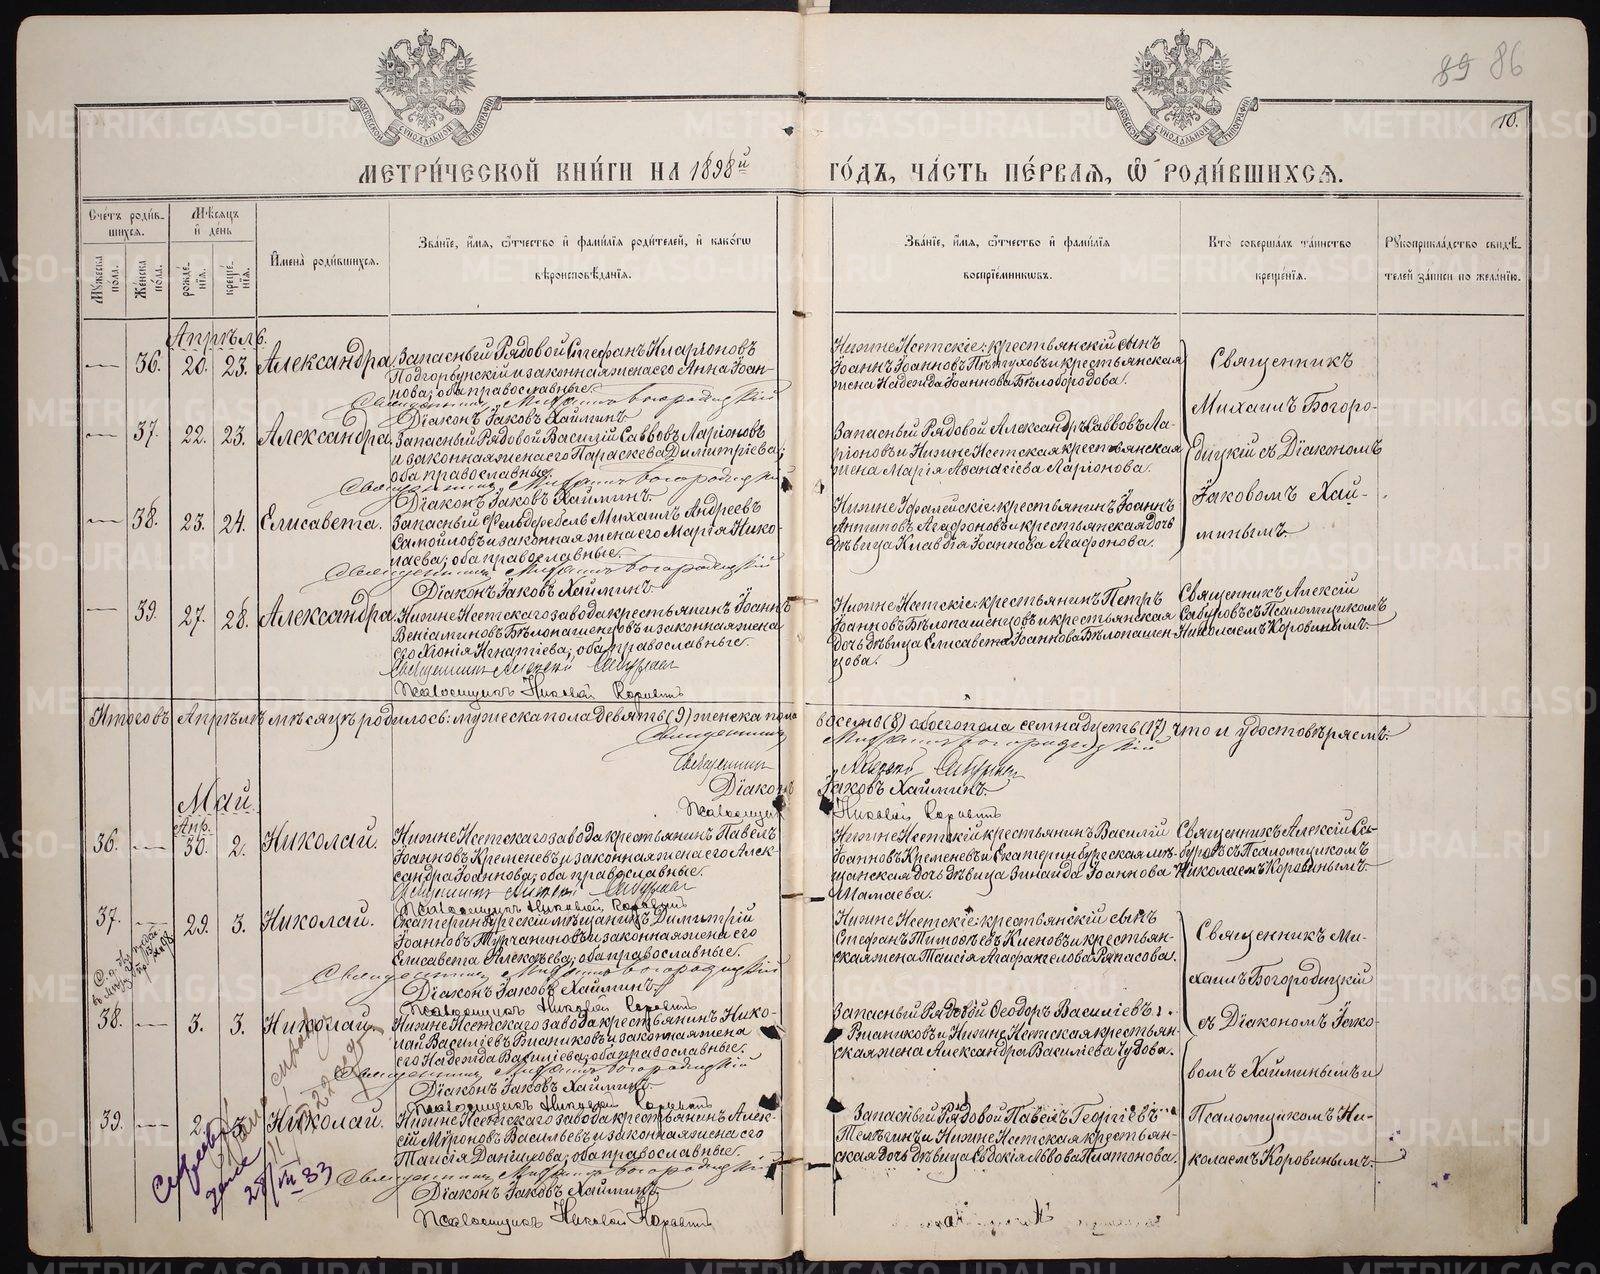 89 86
10.
МЕТРИ́ЧЕСКОЙ КНИ́ГИ НА 1898й ГО́ДЪ, ЧА́СТЬ ПЕ́РВАЯ, Ѡ РОДИ́ВШИХСЯ.
Счетъ родившихся.
Мѣсяцъ и день
Имена родившихся.
Званіе, имя, отчество и фамилія родителей, и какого вѣроисповѣданія.
Званіе, имя, отчество и фамилія воспріемниковъ.
Кто совершалъ таинство крещенія.
Рукоприкладство свидѣтелей записи по желанію.
Мужеска пола.
Женска пола.
рожденія.
крещенія.
Апрѣль.
— 36. 20. 23. Александра
Запасный Рядовой Стефанъ Иларіоновъ
Подгорбунскій и законная жена его Анна Іоан-
нова; оба православные.
Священникъ Михаилъ Богородицкій
Діаконъ Іаковъ Хайминъ.
Нижне Исетскіе: крестьянскій сынъ
Іоаннъ Іоанновъ Пѣтуховъ и крестьянская
жена Надежда Іоаннова Бѣлобородова.
Священникъ
Михаилъ Богоро-
дицкій съ Діакономъ
Іаковомъ Хай-
минымъ.
— 37. 22. 23. Александра
Запасный Рядовой Василій Саввовъ Ларіоновъ
и законная жена его Параскева Димитріева;
оба православные.
Священникъ Михаилъ Богородицкій
Діаконъ Іаковъ Хайминъ.
Запасный Рядовой Александръ Саввовъ Ла-
ріоновъ и Нижне Исетская крестьянская
жена Марія Аѳанасіева Ларіонова.
— 38. 23. 24. Елисавета.
Запасный Фельдфебель Михаилъ Андреевъ
Самойловъ и законная жена его Марія Нико-
лаева; оба православные.
Священникъ Михаилъ Богородицкій
Діаконъ Іаковъ Хайминъ.
Нижне Уфалейскіе: крестьянинъ Іоаннъ
Антиповъ Агафоновъ и крестьянская дочь
дѣвица Клавдія Іоаннова Агафонова.
— 39. 27. 28. Александра
Нижне Исетскаго завода крестьянинъ Іоаннъ
Веніаминовъ Бѣлопашенцовъ и законная жена
его Хіонія Игнатіева; оба православные.
Священникъ Алексій Сабуровъ
Псаломщикъ Николай Коровинъ
Нижне Исетскіе: крестьянинъ Петръ
Іоанновъ Бѣлопашенцовъ и крестьянская
дочь дѣвица Елисавета Іоаннова Бѣлопашен-
цова.
Священникъ Алексій
Сабуровъ съ Псаломщикомъ
Николаемъ Коровинымъ.
Итого въ Апрѣлѣ мѣсяцѣ родилось: мужеска пола девять (9) женска пола восемь (8) обоего пола семнадцать (17) что и удостовѣряемъ:
Священникъ Михаилъ Богородицкій
Священникъ Алексій Сабуровъ
Діаконъ Іаковъ Хайминъ.
Псаломщикъ Николай Коровинъ
Май.
36. — Апр. 30. 2. Николай.
Нижне Исетскаго завода крестьянинъ Павелъ
Іоанновъ Кременевъ и законная жена его Алек-
сандра Іоаннова; оба православные.
Священникъ Алексій Сабуровъ
Псаломщикъ Николай Коровинъ
Нижне Исетскій крестьянинъ Василій
Іоанновъ Кременевъ и Екатеринбургская мѣ-
щанская дочь дѣвица Зинаида Іоаннова
Мамаева.
Священникъ Алексій Са-
буровъ съ Псаломщикомъ
Николаемъ Коровинымъ.
37. — 29. 3. Николай.
Екатеринбургскій мѣщанинъ Димитрій
Іоанновъ Турчаниновъ и законная жена его
Елисавета Алексѣева; оба православные.
Священникъ Михаилъ Богородицкій
Діаконъ Іаковъ Хайминъ.
Псаломщикъ Николай Коровинъ
Нижне Исетскіе: крестьянскій сынъ
Стефанъ Тимоѳеевъ Киеновъ и крестьян-
ская жена Таисія Агафангелова Ряпасова.
Священникъ Ми-
хаилъ Богородицкій
съ Діакономъ Іако-
вомъ Хайминымъ и
Псаломщикомъ Ни-
колаемъ Коровинымъ.
38. — 3. 3. Николай.
Нижне Исетскаго завода крестьянинъ Нико-
лай Василіевъ Вшаниковъ и законная жена
его Надежда Василіева; оба православные.
Священникъ Михаилъ Богородицкій
Діаконъ Іаковъ Хайминъ.
Псаломщикъ Николай Коровинъ
Запасный Рядовой Ѳеодоръ Василіевъ
Вшаниковъ и Нижне Исетская крестьян-
ская жена Александра Василіева Чудова.
39. — 2. 3. Николай.
Нижне Исетскаго завода крестьянинъ Алек-
сій Мироновъ Васильевъ и законная жена его
Таисія Данилова; оба православные.
Священникъ Михаилъ Богородицкій
Діаконъ Іаковъ Хайминъ.
Псаломщикъ Николай Коровинъ
Запасный Рядовой Павелъ Георгіевъ
Телѣгинъ и Нижне Исетская крестьян-
ская дочь дѣвица Евдокія Львова Платонова.
28/VII 33
METRIKI.GASO-URAL.RU